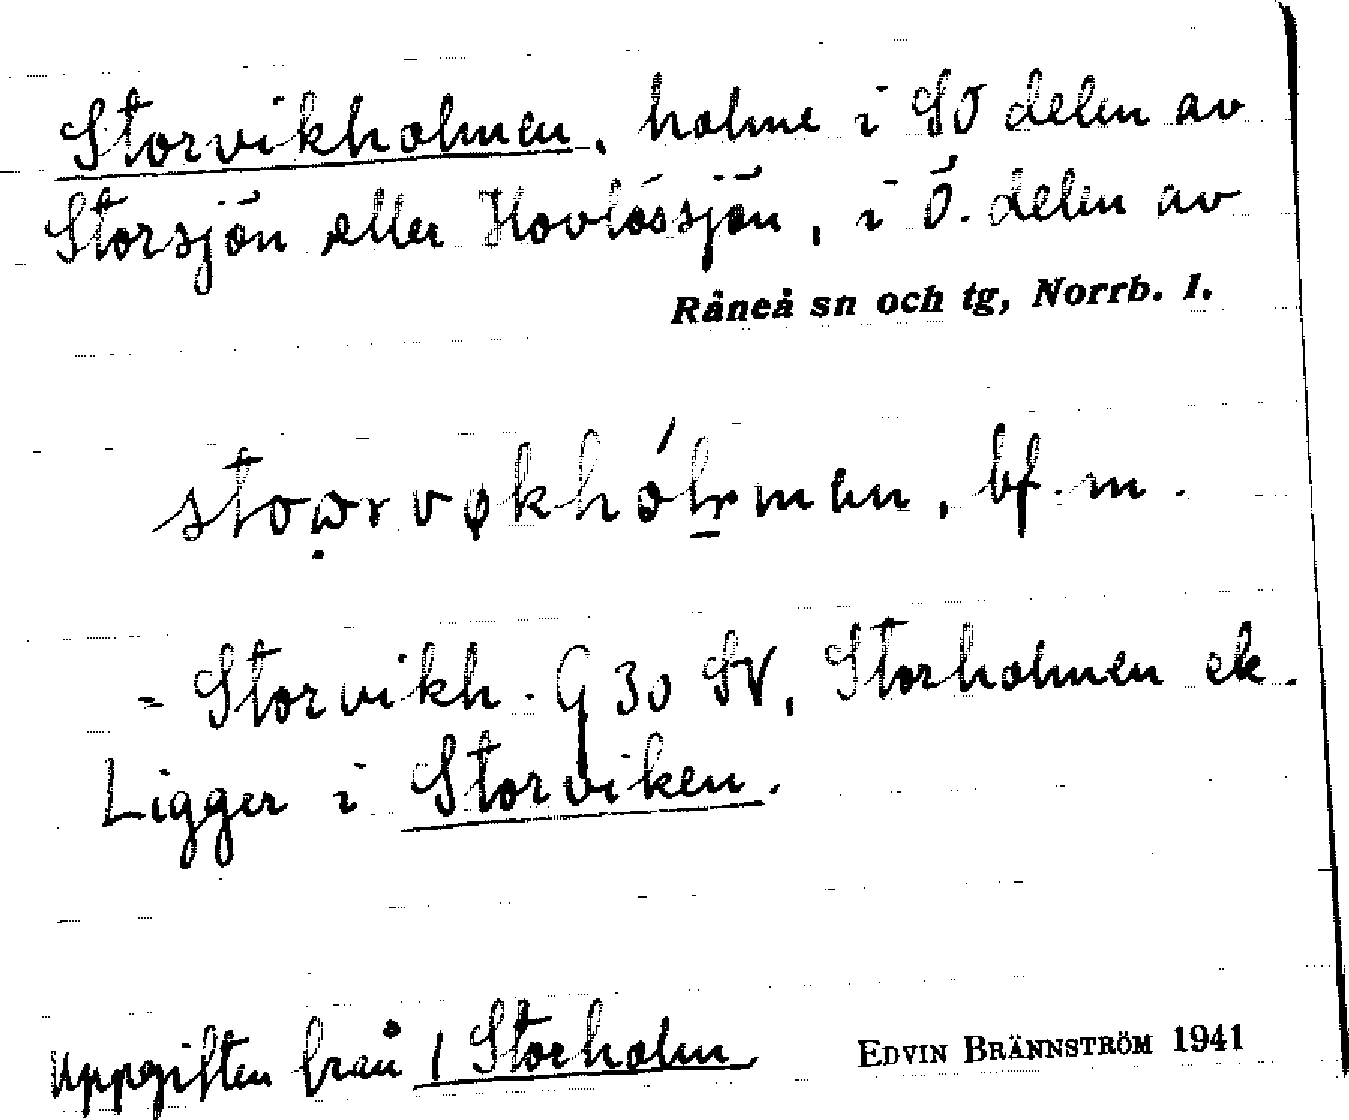 Storvikholmen, holme i SÖ delen av
Storsjön eller Hovlössjön, i Ö. delen av
Råneå sn och tg, Norrb. l.
bf. m.
= Storvikh. G 30 SV, Storholmen ek.
Ligger i Storviken.
Uppgiften från 1 Storholm
EDVIN BRÄNNSTRÖM 1941